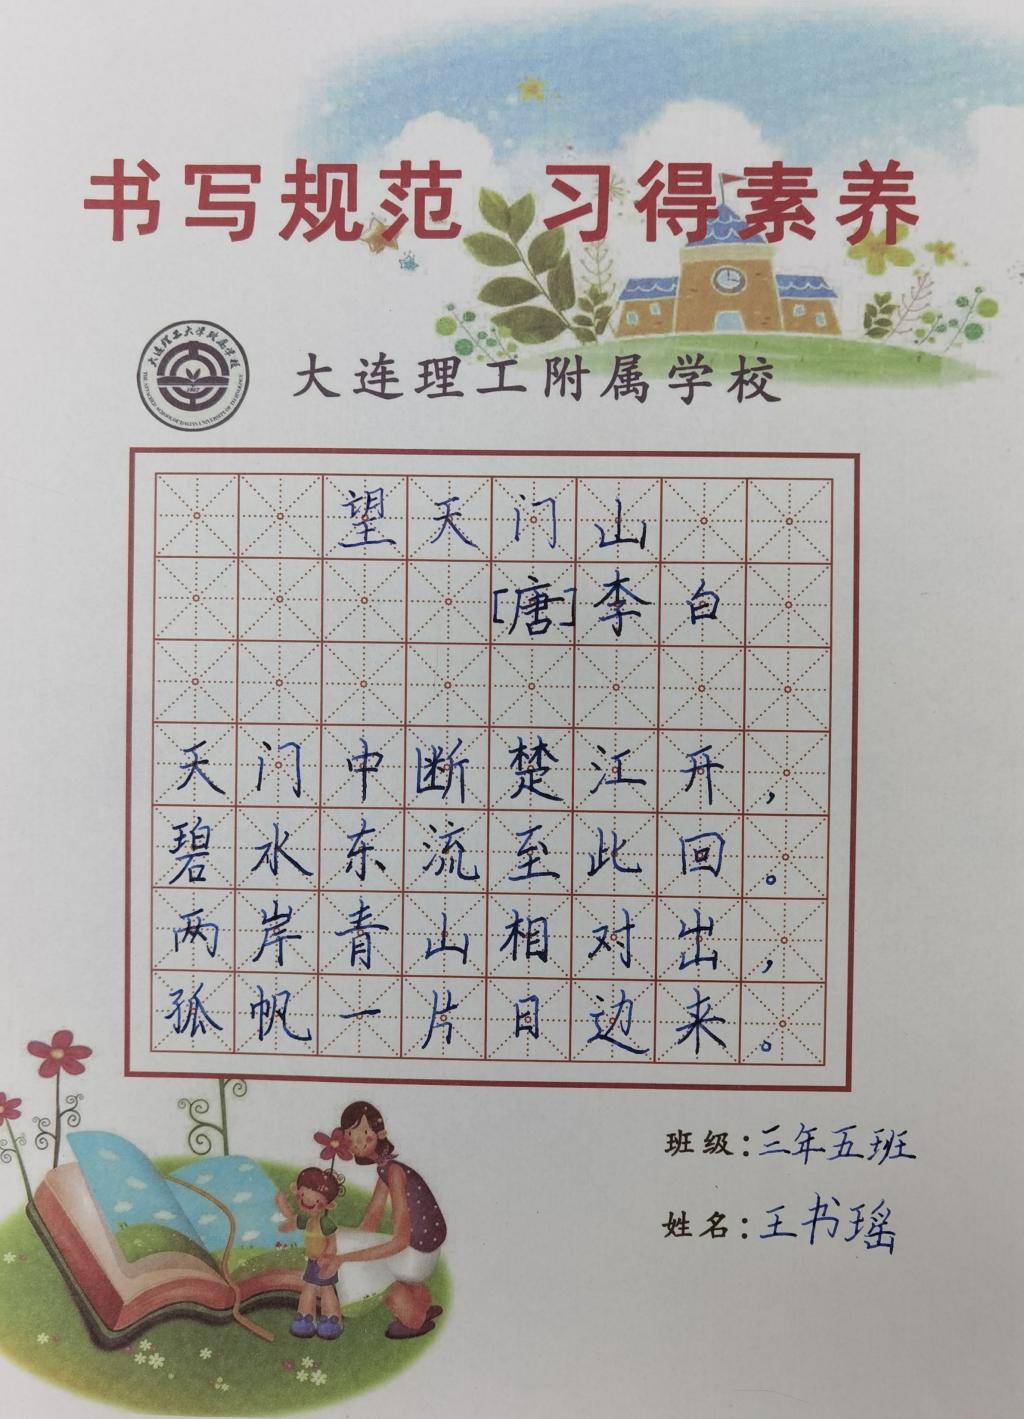 书写规范 习得素养
大连理工大学附属学校
大连理工附属学校
望天门山
[唐]李白
天门中断楚江开，
碧水东流至此回。
两岸青山相对出，
孤帆一片日边来。
班级：三年五班
姓名：王书瑶